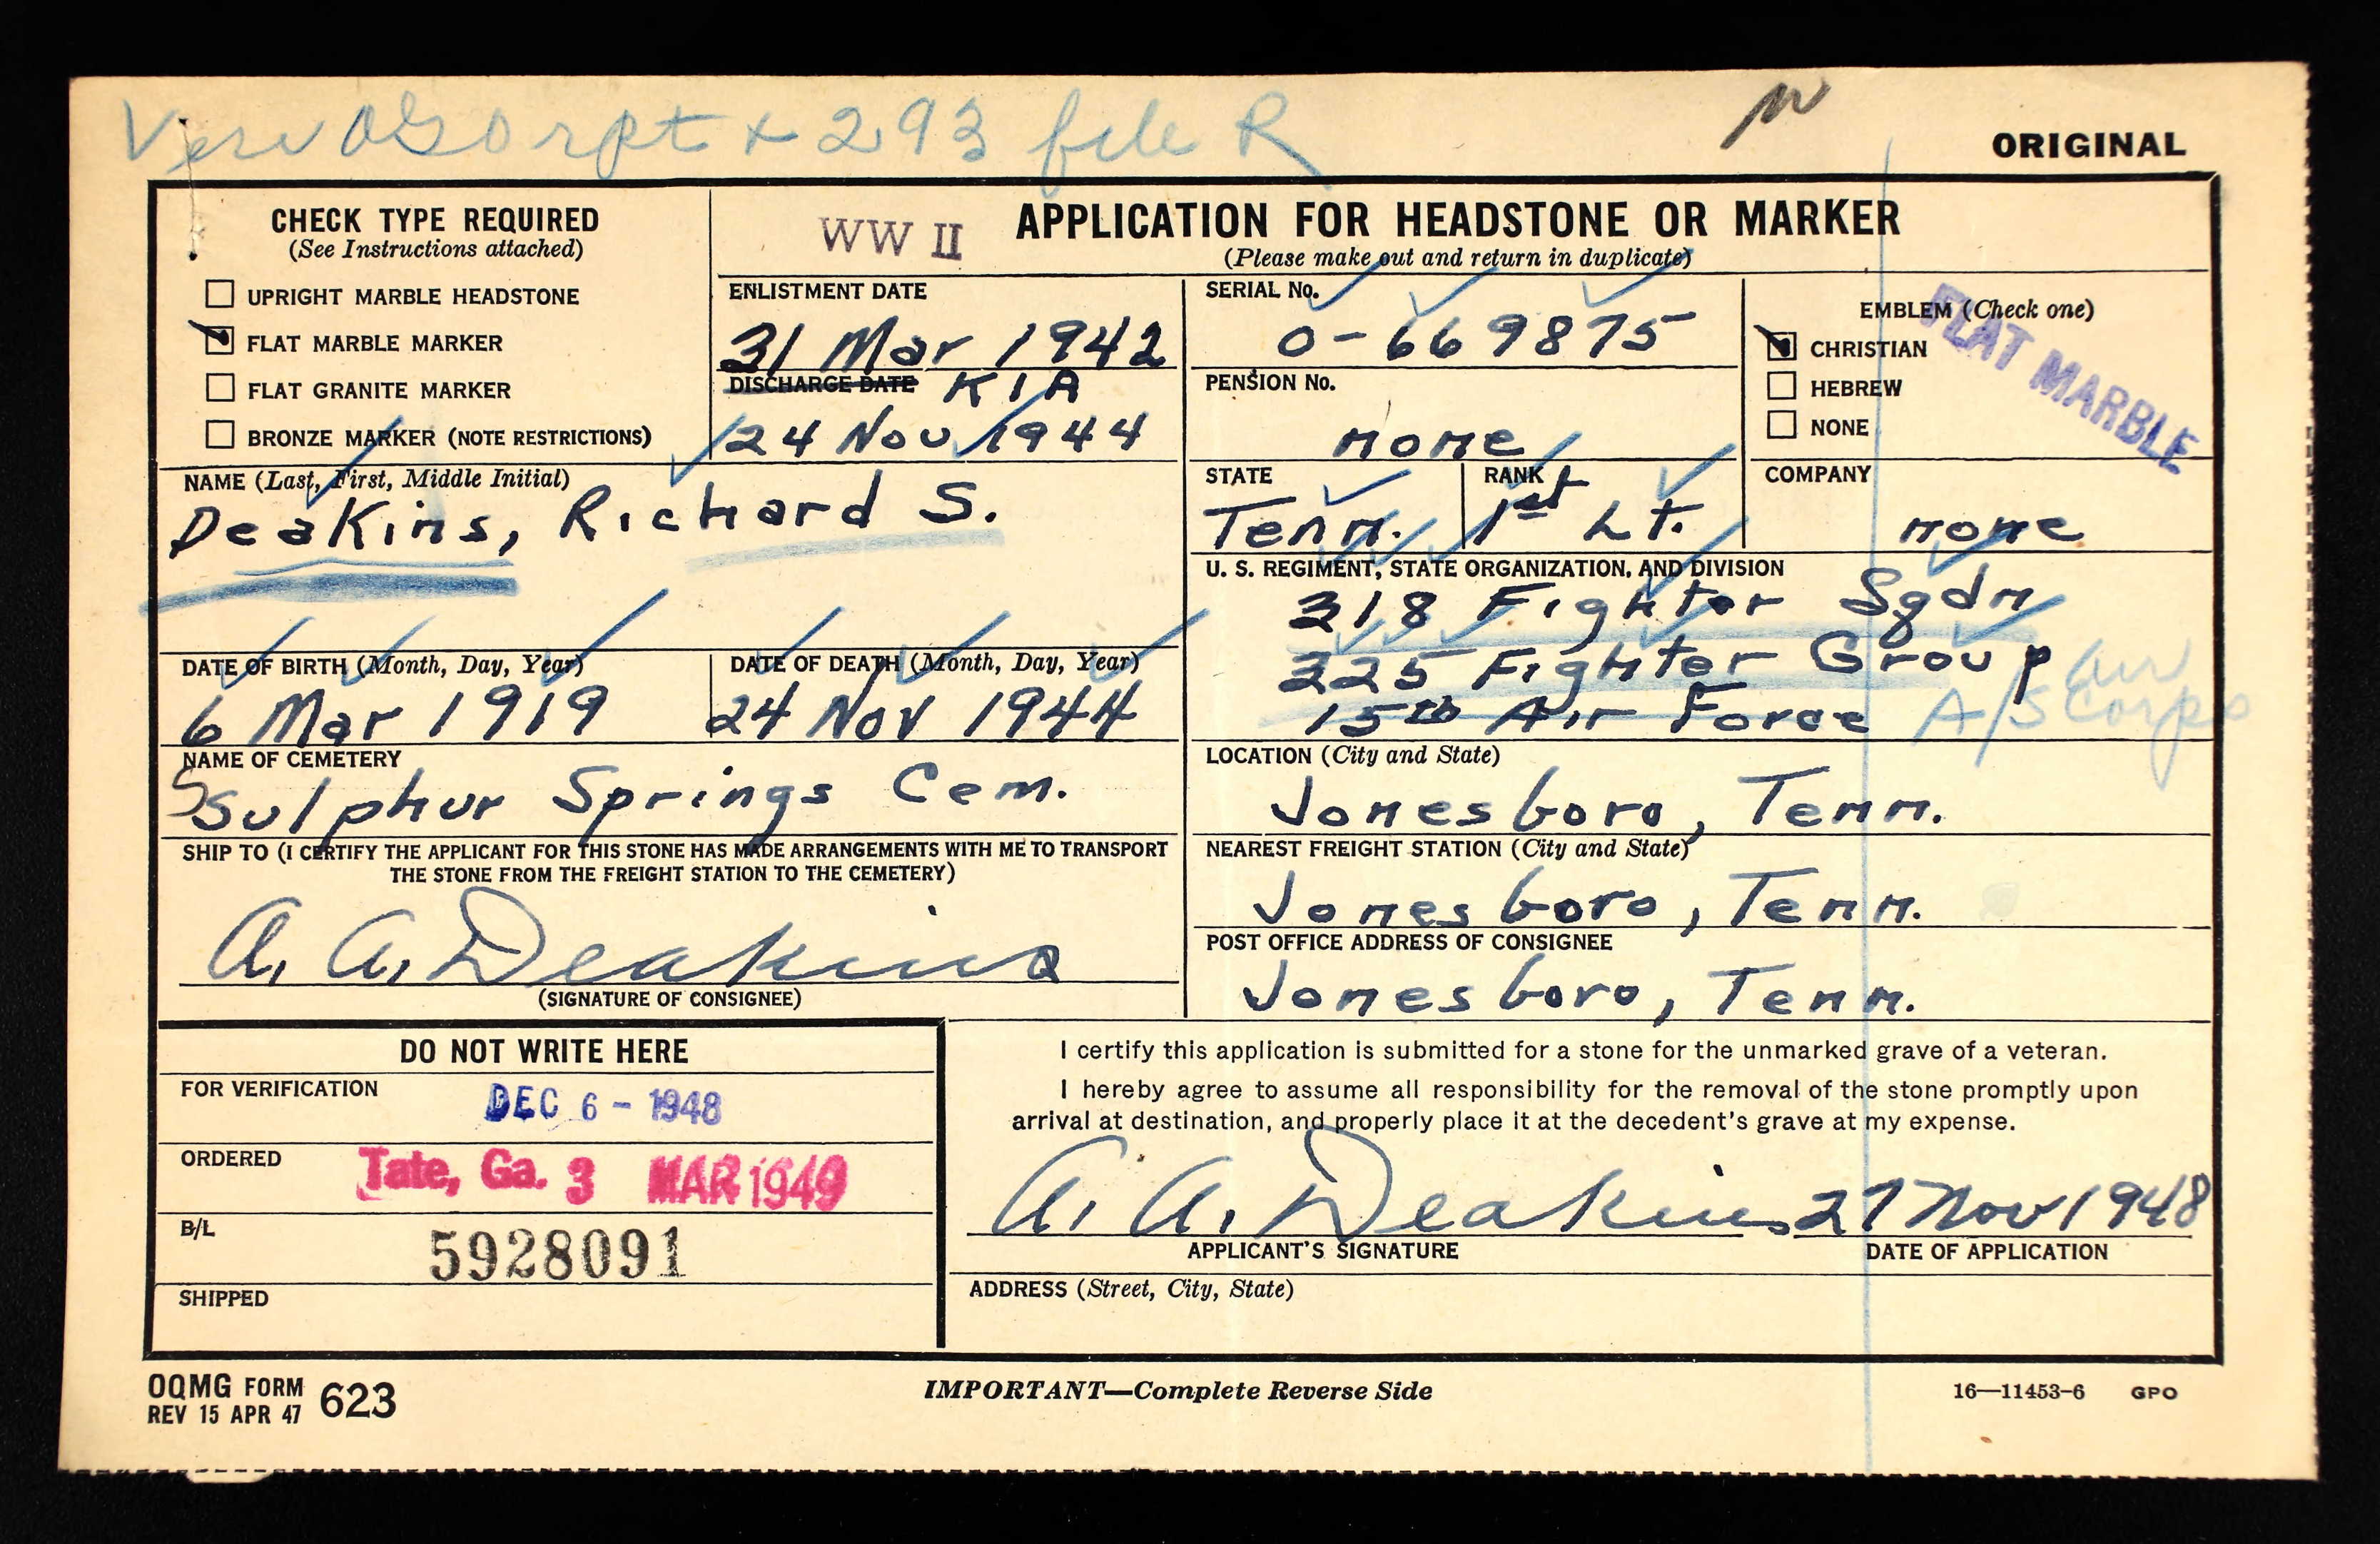 Veri OGO rpt + 293 file R
ORIGINAL
CHECK TYPE REQUIRED
(See Instructions attached)
UPRIGHT MARBLE HEADSTONE
FLAT MARBLE MARKER
FLAT GRANITE MARKER
BRONZE MARKER (NOTE RESTRICTIONS)
WW II
APPLICATION FOR HEADSTONE OR MARKER
(Please make out and return in duplicate)
ENLISTMENT DATE
31 Mar 1942
DISCHARGE DATE KIA
24 Nov 1944
SERIAL No.
O-669875
PENSION No.
none
EMBLEM (Check one)
CHRISTIAN
HEBREW
NONE
FLAT MARBLE
NAME (Last, First, Middle Initial)
Deakins, Richard S.
STATE
Tenn.
RANK
1st Lt.
COMPANY
none
U. S. REGIMENT, STATE ORGANIZATION, AND DIVISION
318 Fighter Sqdn
325 Fighter Group
15th Air Force
Air
A/S Corps
DATE OF BIRTH (Month, Day, Year)
6 Mar 1919
DATE OF DEATH (Month, Day, Year)
24 Nov 1944
NAME OF CEMETERY
Sulphur Springs Cem.
LOCATION (City and State)
Jonesboro, Tenn.
SHIP TO (I CERTIFY THE APPLICANT FOR THIS STONE HAS MADE ARRANGEMENTS WITH ME TO TRANSPORT
THE STONE FROM THE FREIGHT STATION TO THE CEMETERY)
A. A. Deakins
(SIGNATURE OF CONSIGNEE)
NEAREST FREIGHT STATION (City and State)
Jonesboro, Tenn.
POST OFFICE ADDRESS OF CONSIGNEE
Jonesboro, Tenn.
DO NOT WRITE HERE
FOR VERIFICATION
DEC 6 - 1948
ORDERED
Tate, Ga. 3 MAR 1949
B/L
5928091
SHIPPED
I certify this application is submitted for a stone for the unmarked grave of a veteran.
I hereby agree to assume all responsibility for the removal of the stone promptly upon
arrival at destination, and properly place it at the decedent's grave at my expense.
A. A. Deakins 27 Nov 1948
APPLICANT'S SIGNATURE
DATE OF APPLICATION
ADDRESS (Street, City, State)
OQMG FORM 623
REV 15 APR 47
IMPORTANT—Complete Reverse Side
16—11453-6 GPO